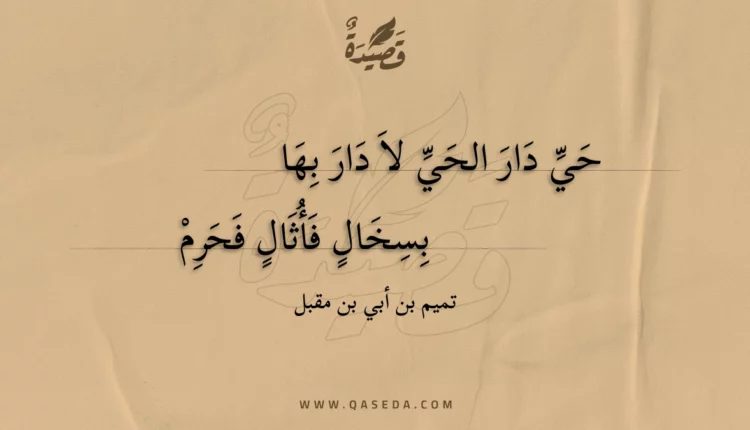 قَصِيدَةٌ
حَيِّ دَارَ الحَيِّ لاَ دَارَ بِهَا
بِسِخَالٍ فَأُثَالٍ فَحَرِمْ
تميم بن أبي بن مقبل
WWW.QASEDA.COM